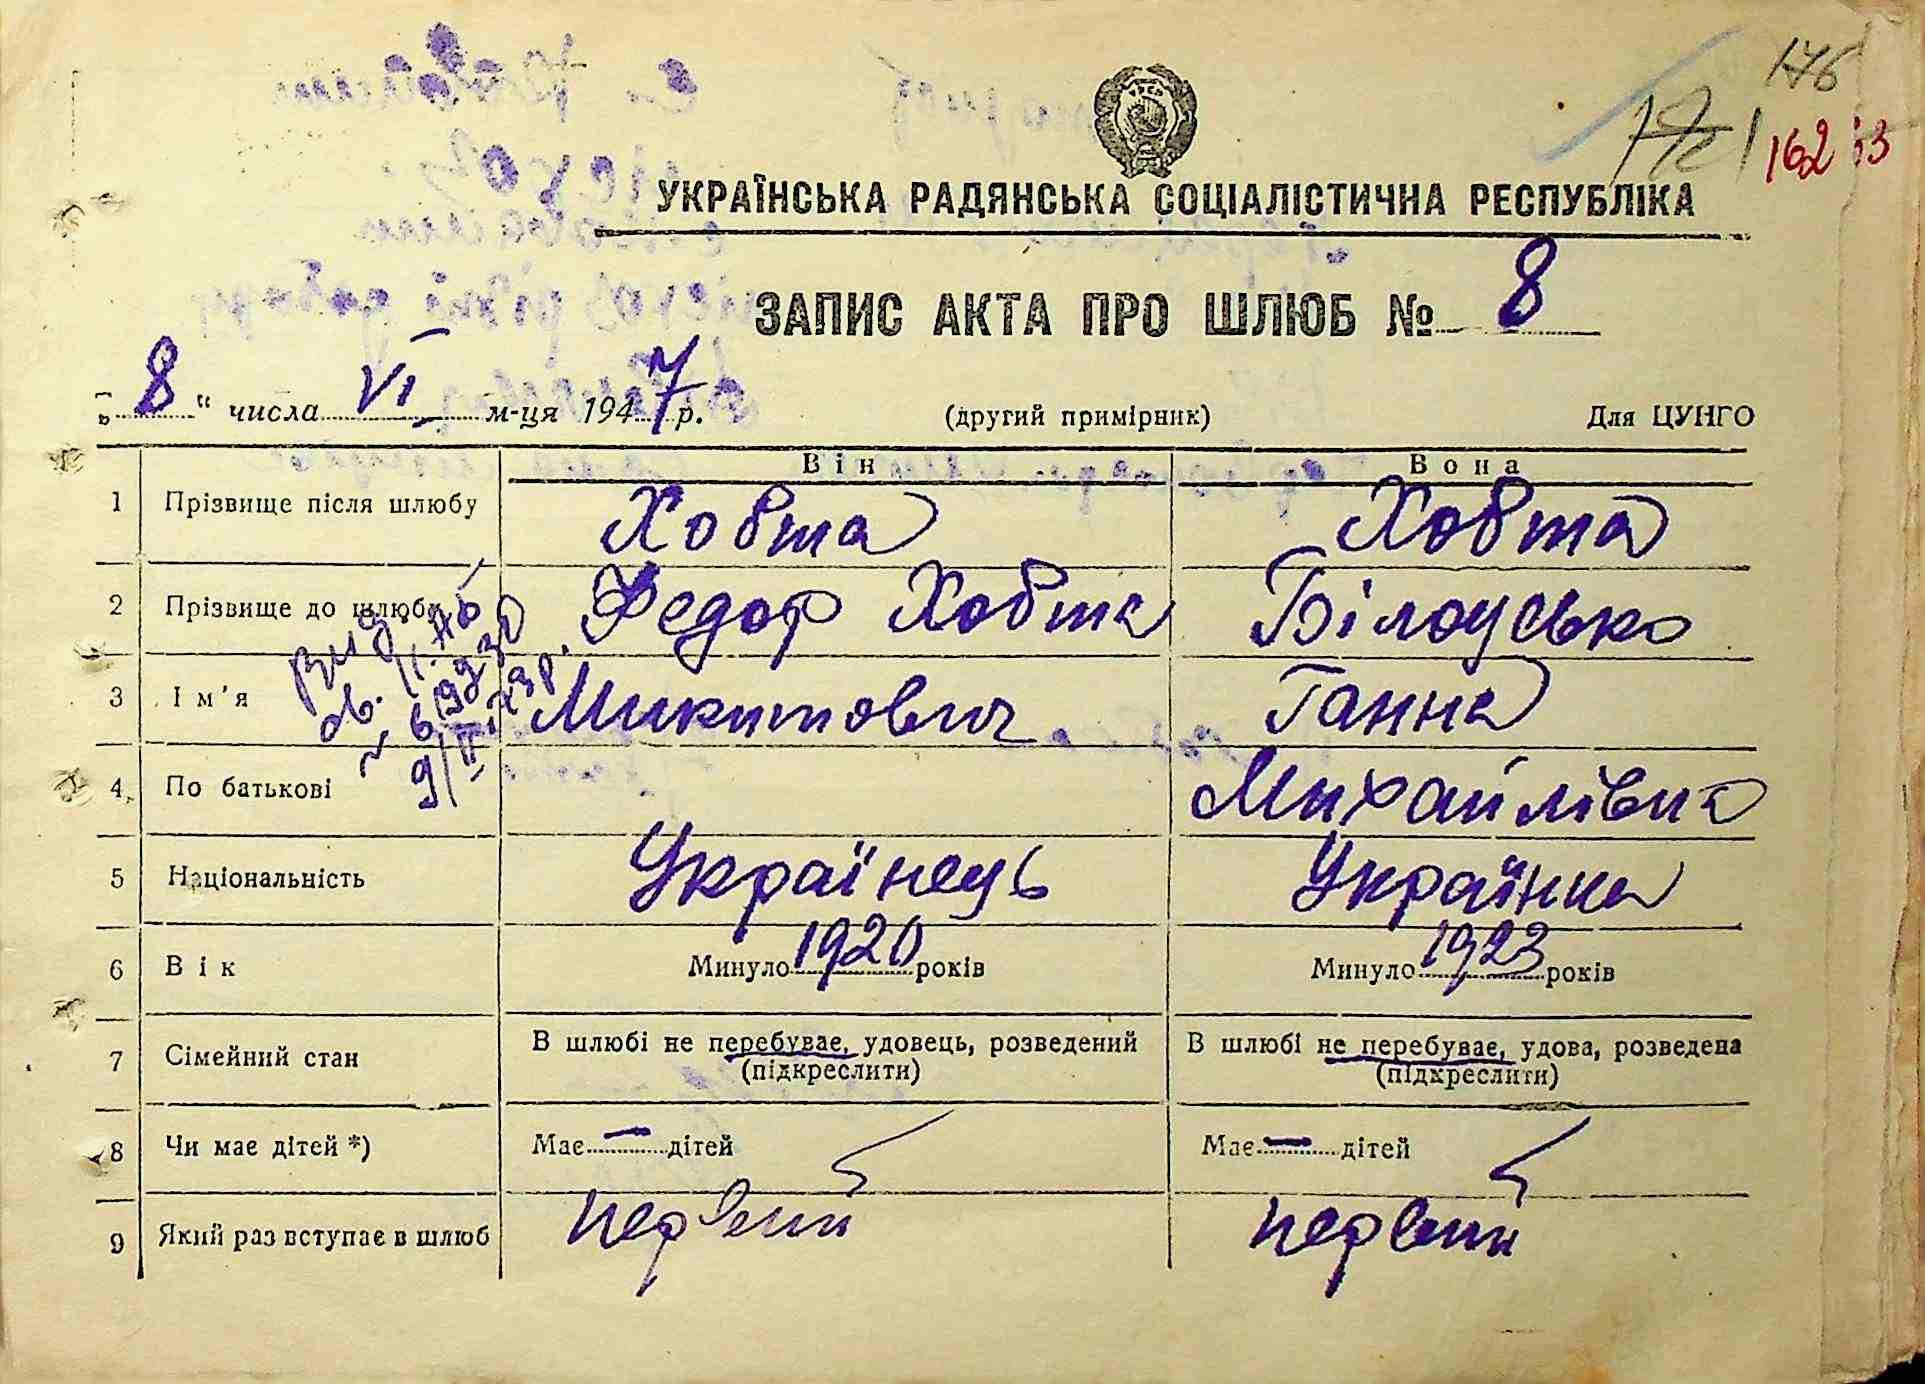 146
162 із
УКРАЇНСЬКА РАДЯНСЬКА СОЦІАЛІСТИЧНА РЕСПУБЛІКА
ЗАПИС АКТА ПРО ШЛЮБ № 8
„8“ числа VI м-ця 1947 р. (другий примірник) Для ЦУНГО
Він Вона
1 Прізвище після шлюбу Ховта Ховта
2 Прізвище до шлюбу Федор Ховта Білоусько
3 Ім'я Микитович Ганна
4 По батькові Михайлівна
5 Національність Українець Українка
6 Вік Минуло 1920 років Минуло 1923 років
7 Сімейний стан В шлюбі не перебуває, удовець, розведений В шлюбі не перебуває, удова, розведена
(підкреслити) (підкреслити)
8 Чи має дітей *) Має — дітей Має — дітей
9 Який раз вступає в шлюб первий первий